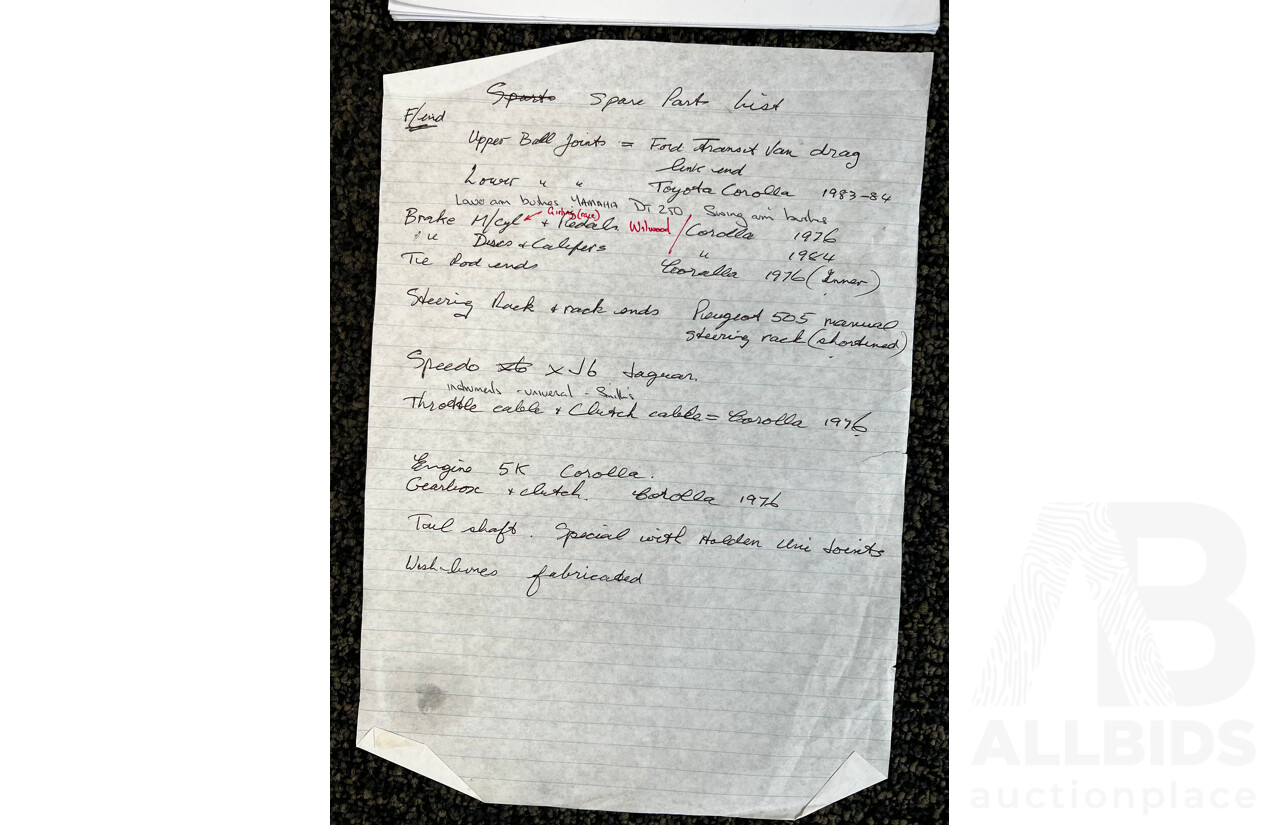 Sparts Spare Parts List
F/end
Upper Ball Joints = Ford Transit Van drag
link end
Lower " " Toyota Corolla 1983-84
Lower arm bushes YAMAHA DT 250 Swing arm bushes
Girling (race)
Brake M/cyl + Pedals Wilwood / Corolla 1976
" " Discs + Calipers " 1984
Tie Rod ends Corolla 1976 (Inner)
Steering Rack + rack ends Peugeot 505 manual
steering rack (shortened)
Speedo XJ6 Jaguar
instruments - universal - Smiths
Throttle cable + Clutch cable = Corolla 1976
Engine 5K Corolla.
Gearbox + clutch. Corolla 1976
Tail shaft. Special with Holden Uni Joints
Wish-bones fabricated
AB
ALLBIDS
auctionplace